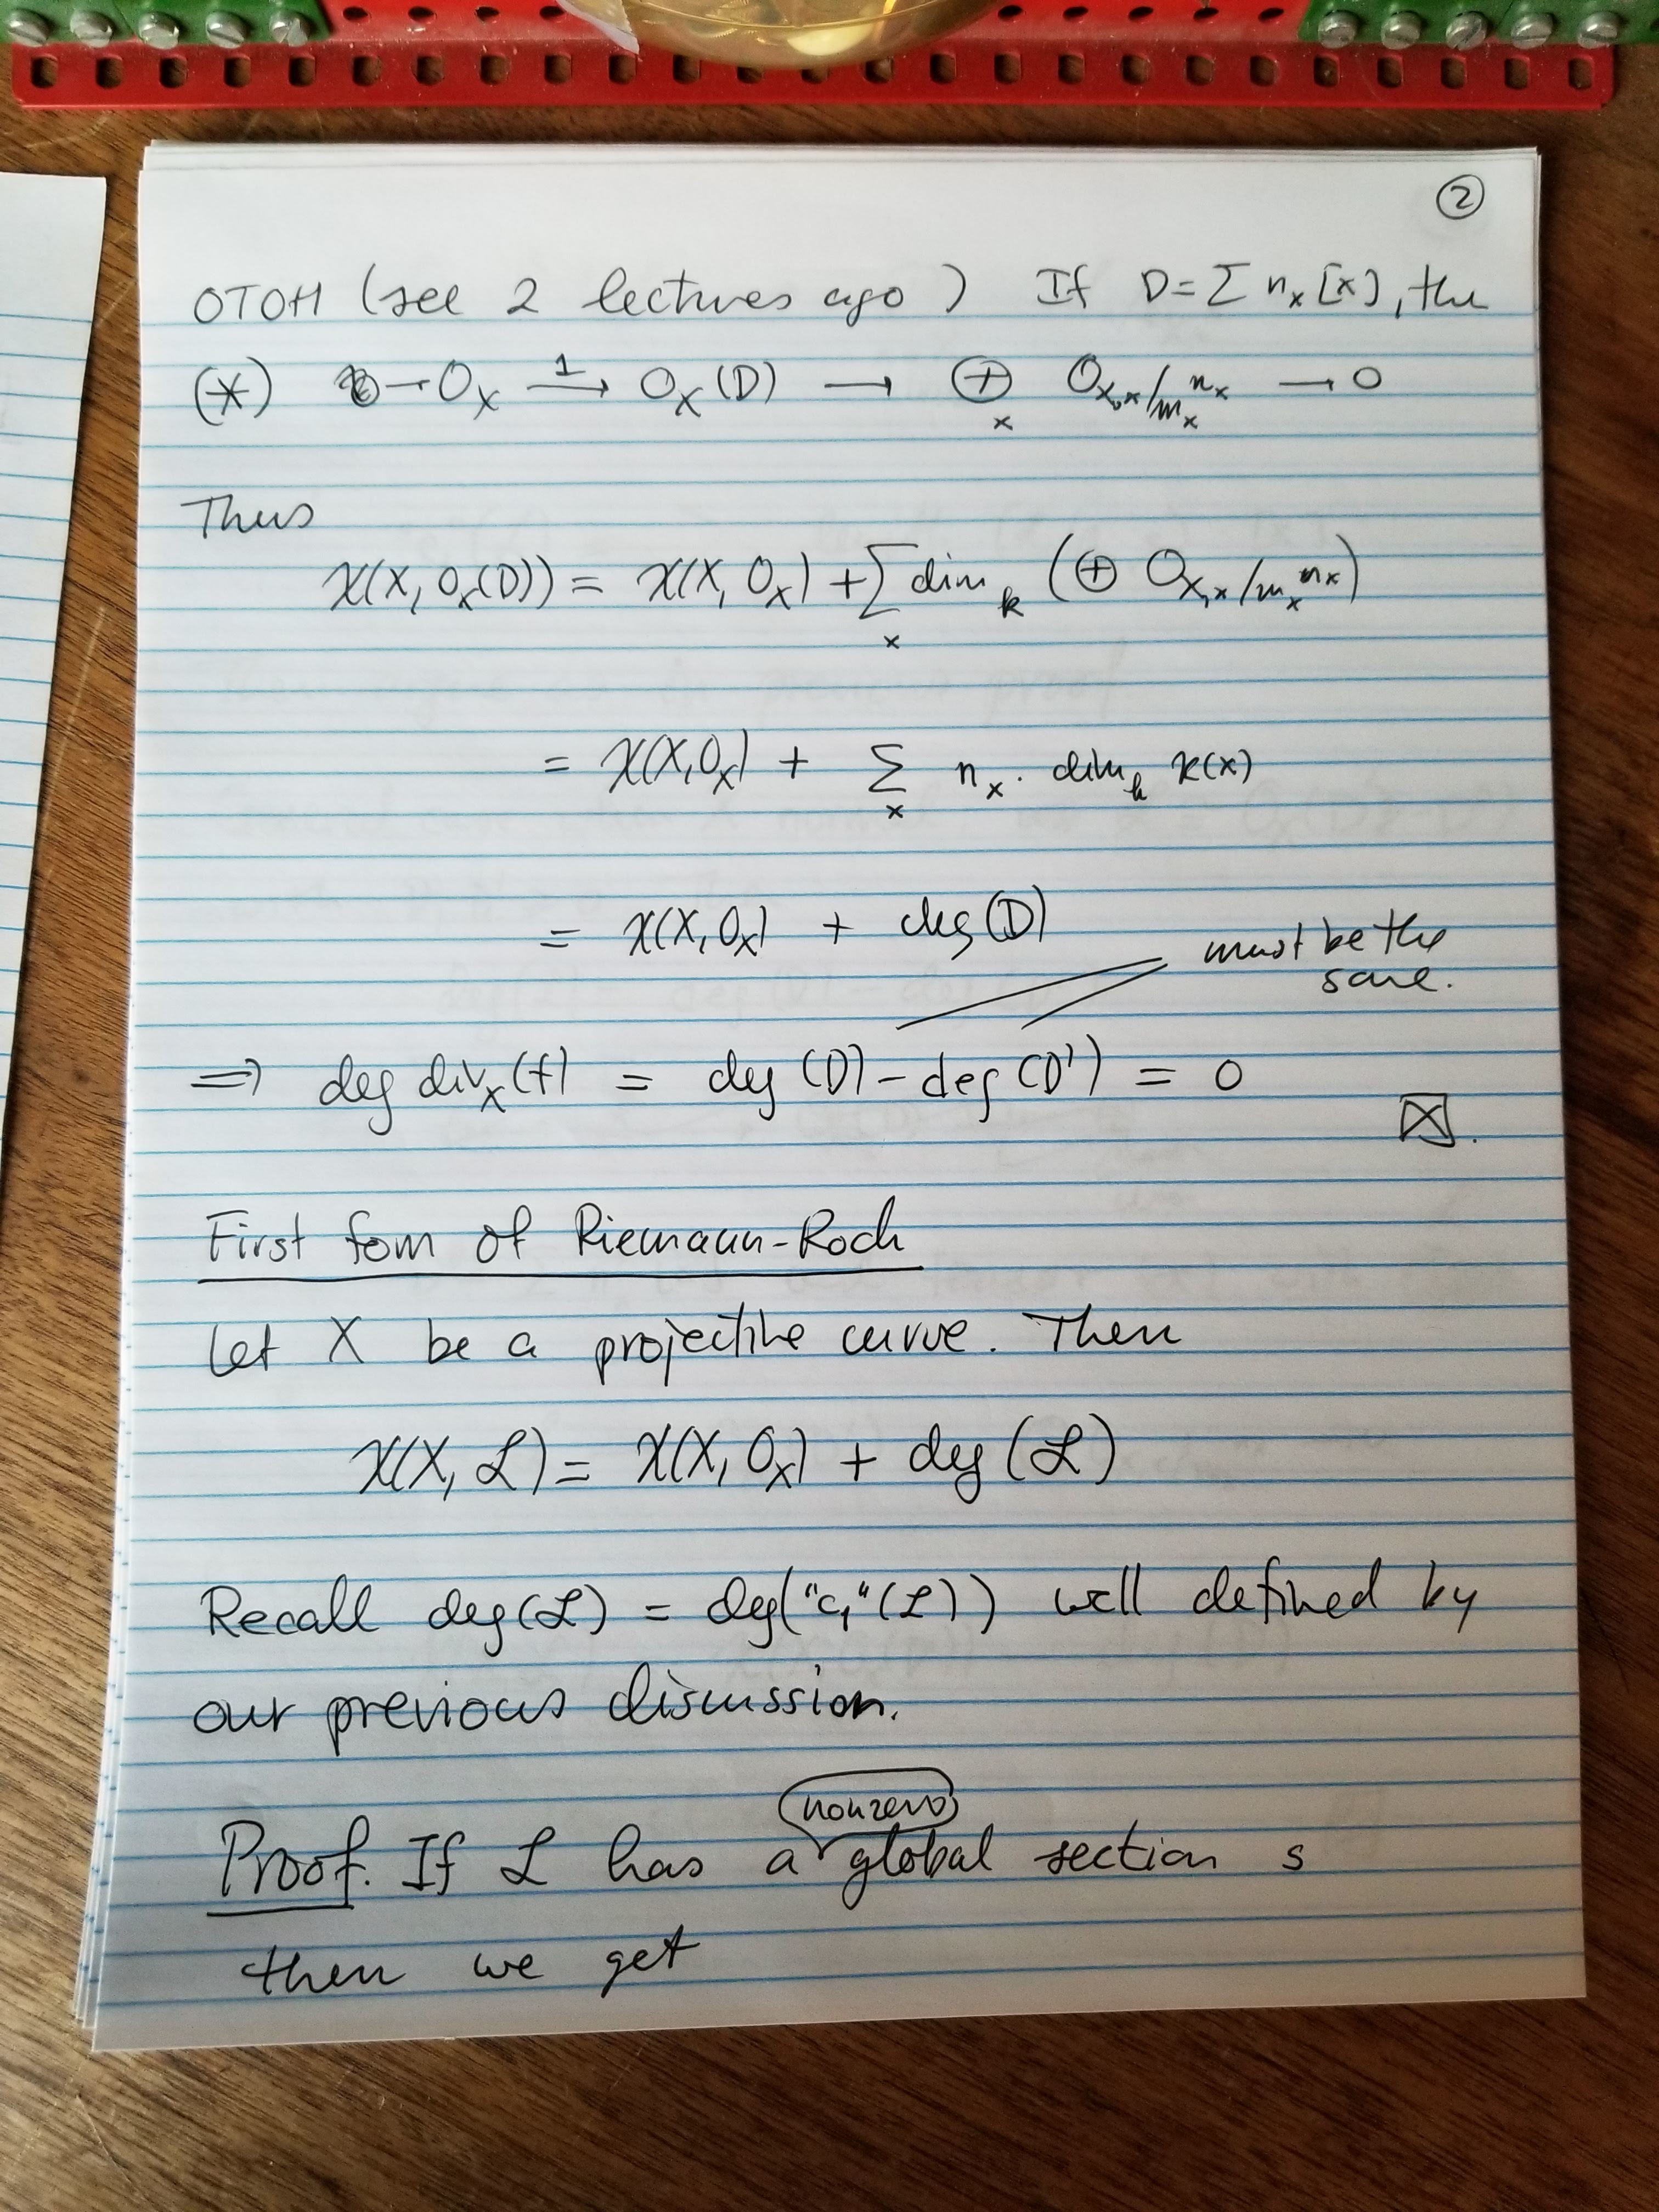 ②
OTOH (see 2 lectures ago) If D = Σ nₓ[x], the
(*) 0 → O_X —1→ O_X(D) → ⊕_x O_{X,x}/m_x^{n_x} → 0
Thus
χ(X, O_X(D)) = χ(X, O_X) + Σ_x dim_k (⊕ O_{X,x}/m_x^{n_x})
= χ(X, O_X) + Σ_x n_x · dim_k κ(x)
= χ(X, O_X) + deg(D)
must be the
same.
⇒ deg div_X(f) = deg(D) - deg(D') = 0
⊠.
First form of Riemann-Roch
Let X be a projective curve. Then
χ(X, ℒ) = χ(X, O_X) + deg(ℒ)
Recall deg(ℒ) = deg("c₁"(ℒ)) well defined by
our previous discussion.
Proof. If ℒ has a nonzero global section s
then we get